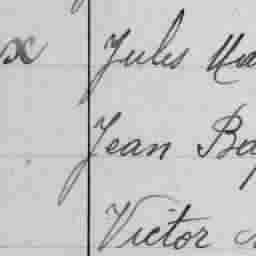 x Jules
Jean Ba
Victor